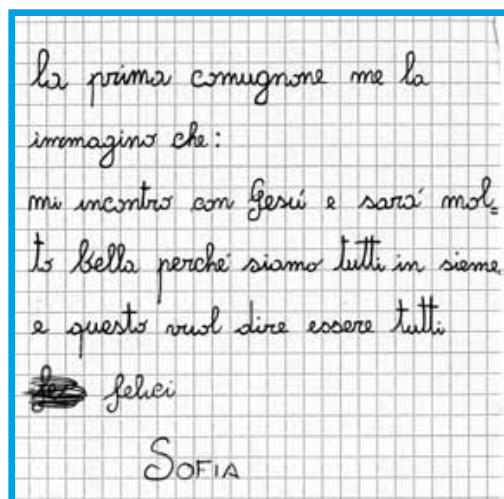 la prima comugnone me la
immagino che:
mi incontro con Gesú e sará mol=
to bella perché siamo tutti in sieme
e questo vuol dire essere tutti
felici
SOFIA